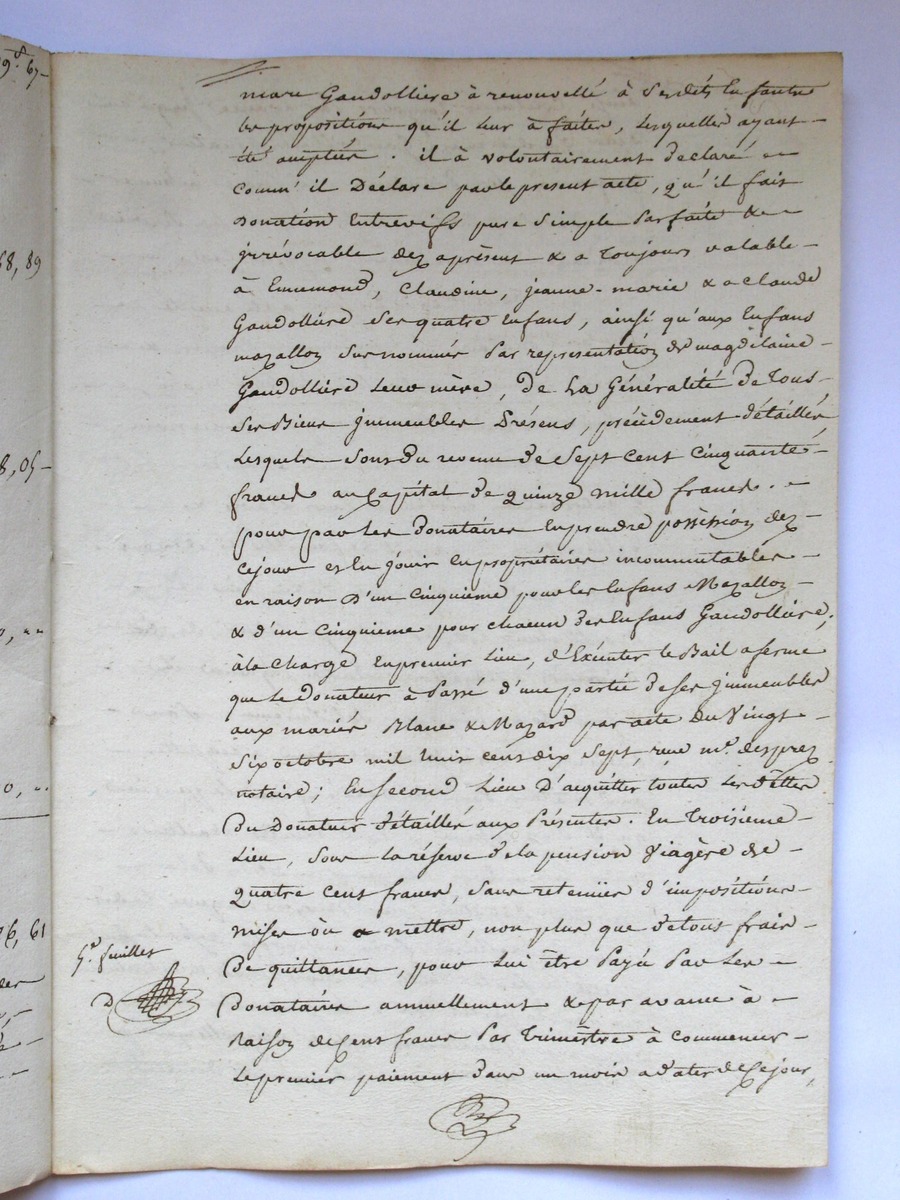 9.8 67-
68, 89
8, 05-
0, ""
0, ..
26, 61
marc Gaudolliere à renouvellé à Sesdits Enfants
les propositions qu'il leur à faites, Lesquelles ayant
été acceptées. il à volontairement declaré
comm' il Déclare parle present acte, qu'il fait
Donation Entrevifs pure Simple Parfaite &
irrévocable dez aprésent & a Toujours valable
à Ennemond, Claudine, jeanne-marie & a Claude
Gaudolliere Ses quatre Enfans, ainsi qu'aux Enfans
mazalloz Susnommés Par representation de magdelaine
Gaudolliere Leur mère, De La Généralité De Tous
Ses Biens immeubles Présens, précédement détaillés
Lesquels Sont Du revenu De Sept Cent Cinquante
francs au Capital De quinze mille francs.
pour par Les Donataires En prendre possession dez
Cejour et En jouir En propriétaires incommutables
en raison D'un Cinquieme pour les Enfans Mazalloz
& d'un Cinquieme pour chacun Des Enfans Gaudolliere;
à la Charge En premier Lieu, d'Exécuter le Bail a ferme
que Le Donateur à Passé d'une partie De Ses immeubles
aux mariés Blanc & Mazard par acte Du Vingt
Six octobre mil huit cent dix Sept, reçu me. desprez
notaire; En Second Lieu D'acquitter toutes Les Dettes
Du Donateur Détaillés aux Présentes. En Troisieme
Lieu, Sous La réserve De la pension Viagère De
Quatre Cent francs, Sans retenüe d'impositions
mises ou a mettre, non plus que De tous frais
De quittances, pour Lui être Payée Par Les
Donataires annuellement & par avance à
Raison de Cent francs Par Trimestre à Commencer
Le premier paiement Dans un mois a dater de Cejour,
5e. feuillet
D